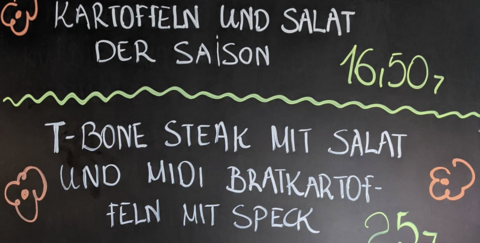 KARTOFFELN UND SALAT
DER SAISON
16,50,
T-BONE STEAK MIT SALAT
UND MIDI BRATKARTOF-
FELN MIT SPECK
25,